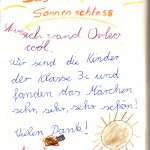 Sonnenschloss
cool.
Wir sind die Kinder
der Klasse 3c und
fanden das Märchen
sehr, sehr, sehr schön!
Vielen Dank!